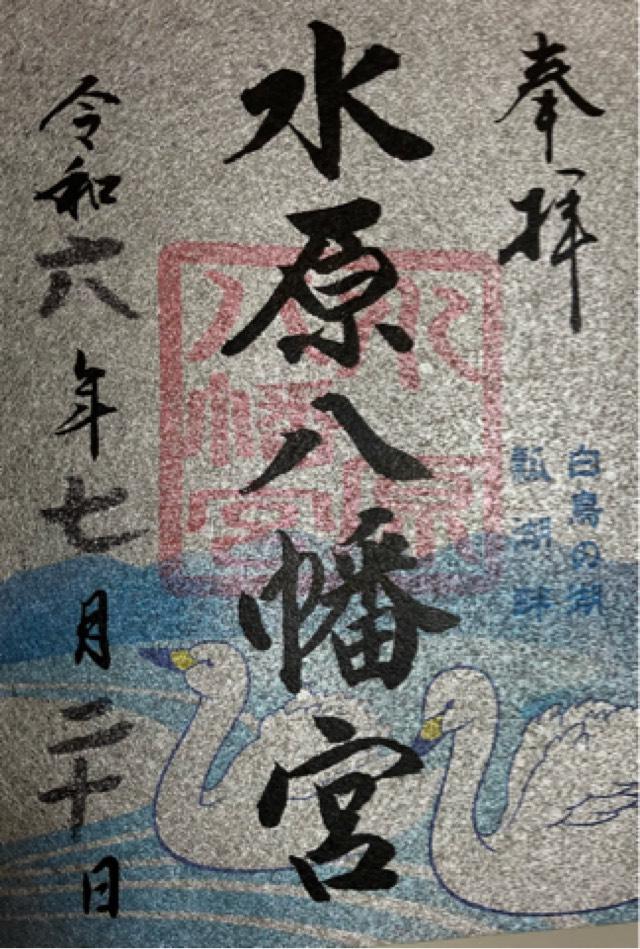 奉拝
白鳥の湖
瓢湖畔
水原八幡宮
水原八幡宮
令和六年七月二十日